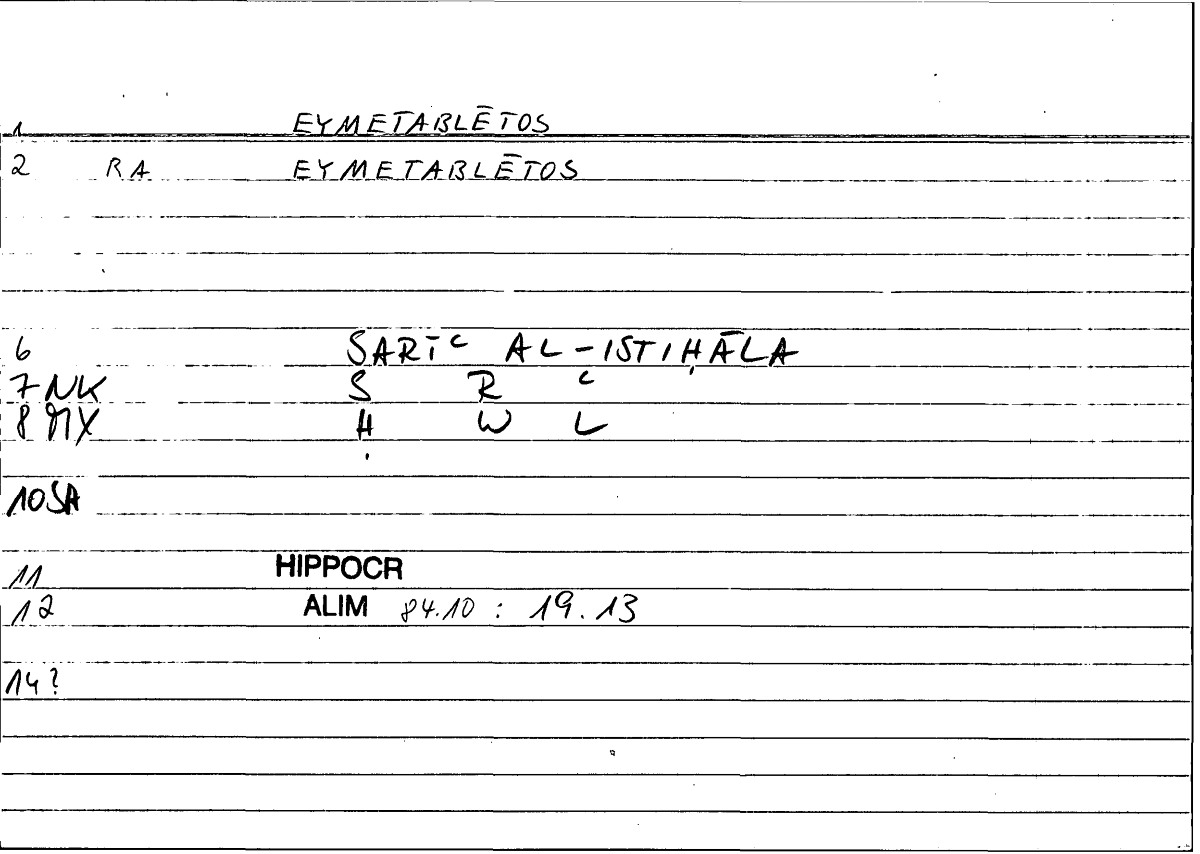 1 EYMETABLĒTOS
2 RA EYMETABLĒTOS
6 SARĪʿ AL-ISTIḤĀLA
7 NK S R ʿ
8 MX Ḥ W L
10 SA
11 HIPPOCR
12 ALIM 84.10 : 19.13
14?